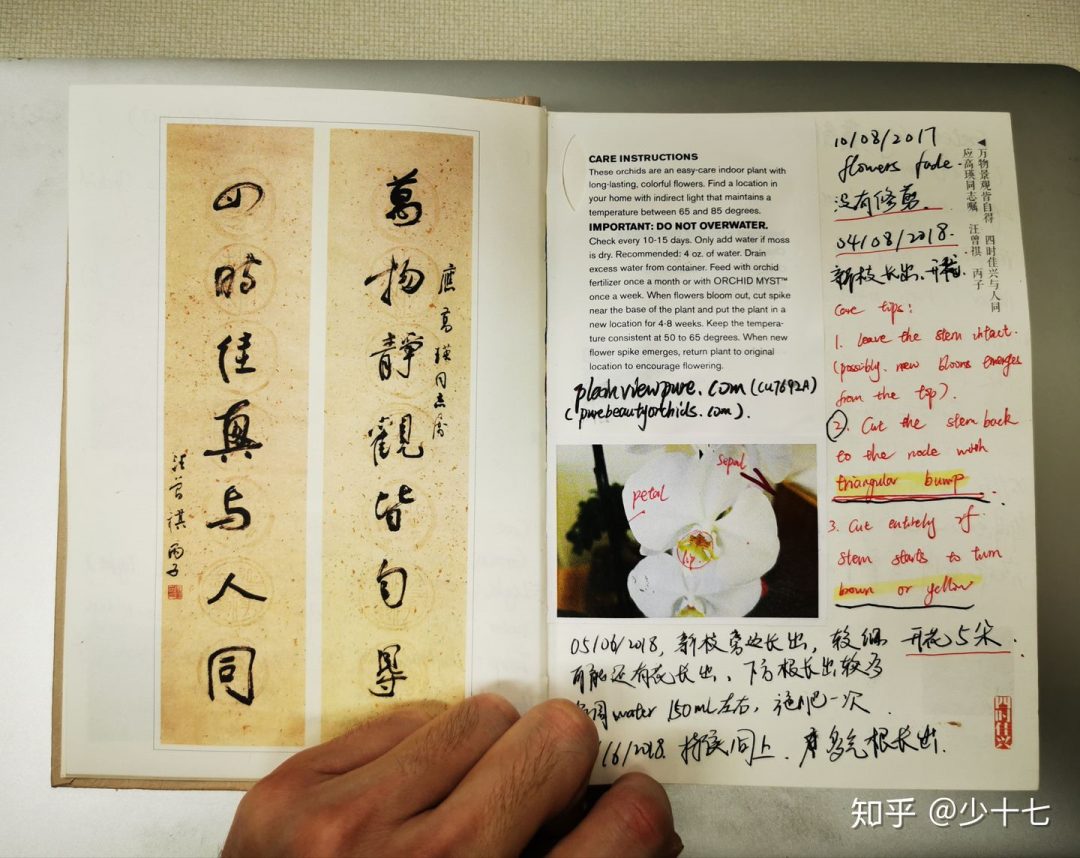 萬物靜觀皆自得
應高瑛同志屬
四時佳興与人同
汪曾祺 丙子
CARE INSTRUCTIONS
These orchids are an easy-care indoor plant with
long-lasting, colorful flowers. Find a location in
your home with indirect light that maintains a
temperature between 65 and 85 degrees.
IMPORTANT: DO NOT OVERWATER.
Check every 10-15 days. Only add water if moss
is dry. Recommended: 4 oz. of water. Drain
excess water from container. Feed with orchid
fertilizer once a month or with ORCHID MYST™
once a week. When flowers bloom out, cut spike
near the base of the plant and put the plant in a
new location for 4-8 weeks. Keep the tempera-
ture consistent at 50 to 65 degrees. When new
flower spike emerges, return plant to original
location to encourage flowering.
(cu7692A)
(purebeautyorchids.com).
petal
sepal
lip
10/08/2017
flowers fade.
没有修剪.
04/08/2018.
新枝长出、开花.
care tips:
1. Leave the stem intact.
(possibly new blooms emerges
from the top).
2. Cut the stem back
to the node with
triangular bump
3. Cut entirely if
stem starts to turn
brown or yellow
◀万物景观皆自得 四时佳兴与人同
应高瑛同志嘱 汪曾祺 丙子
05/06/2018, 新枝旁边长出, 较细 开花5朵.
可能还有花长出、下方根长出较多
周water 150mL左右, 施肥一次.
/6/2018. 同上. 多气根长出.
四时佳兴
知乎 @少十七